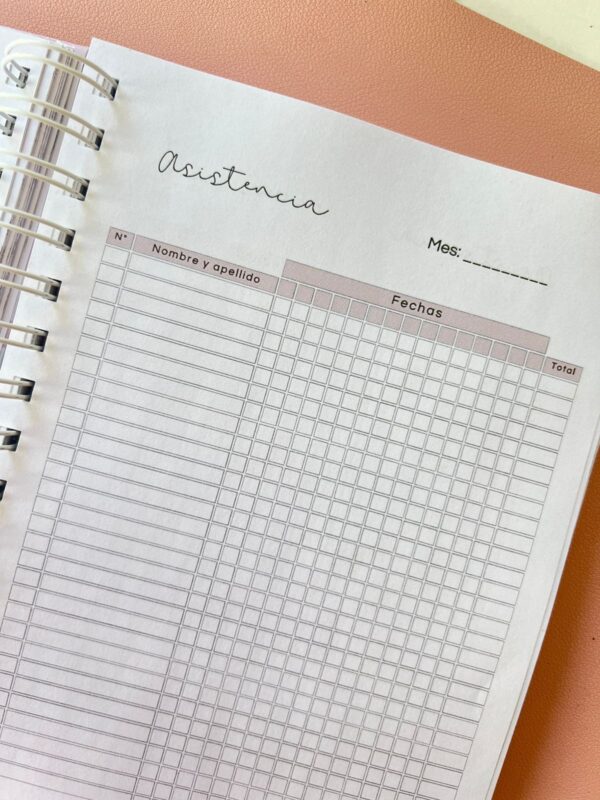 Asistencia
Mes:_________
N° Nombre y apellido Fechas Total